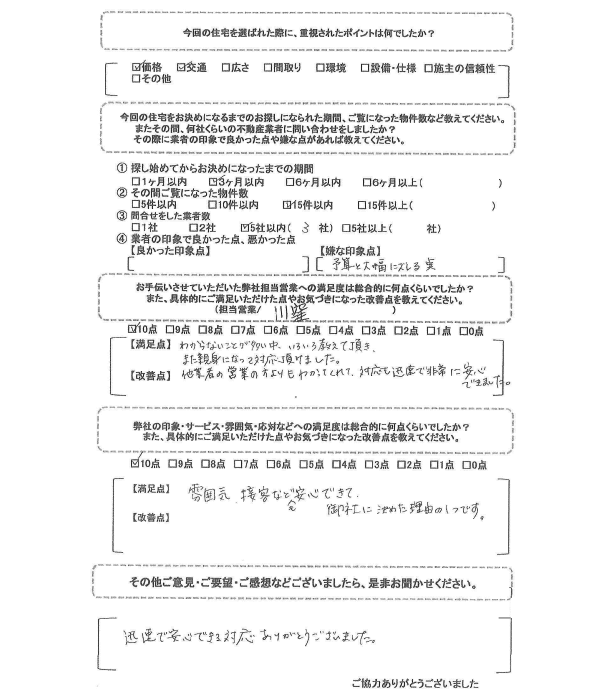 今回の住宅を選ばれた際に、重視されたポイントは何でしたか？
☑価格 ☑交通 □広さ □間取り □環境 □設備・仕様 □施主の信頼性
□その他
今回の住宅をお決めになるまでのお探しになられた期間、ご覧になった物件数など教えてください。
またその間、何社くらいの不動産業者に問い合わせをしましたか？
その際に業者の印象で良かった点や嫌な点があれば教えてください。
① 探し始めてからお決めになったまでの期間
□1ヶ月以内 ☑3ヶ月以内 □6ヶ月以内 □6ヶ月以上( )
② その間ご覧になった物件数
□5件以内 □10件以内 ☑15件以内 □15件以上( )
③ 問合せをした業者数
□1社 □2社 ☑5社以内( 3 社) □5社以上( 社)
④ 業者の印象で良かった点、悪かった点
【良かった印象点】 【嫌な印象点】
予算と大幅にズレる実
お手伝いさせていただいた弊社担当営業への満足度は総合的に何点くらいでしたか？
また、具体的にご満足いただけた点やお気づきになった改善点を教えてください。
(担当営業/ 川窪 )
☑10点 □9点 □8点 □7点 □6点 □5点 □4点 □3点 □2点 □1点 □0点
【満足点】 わからないことが多い中、いろいろ教えて頂き、
また親身になって対応頂けました。
【改善点】 他業者の営業の方よりもわかってくれて、対応も迅速で非常に安心
できました。
弊社の印象・サービス・雰囲気・応対などへの満足度は総合的に何点くらいでしたか？
また、具体的にご満足いただけた点やお気づきになった改善点を教えてください。
☑10点 □9点 □8点 □7点 □6点 □5点 □4点 □3点 □2点 □1点 □0点
【満足点】 雰囲気、接客など安心できて、
【改善点】 御社に決めた理由の1つです。
その他ご意見・ご要望・ご感想などございましたら、是非お聞かせください。
迅速で安心できる対応ありがとうございました。
ご協力ありがとうございました